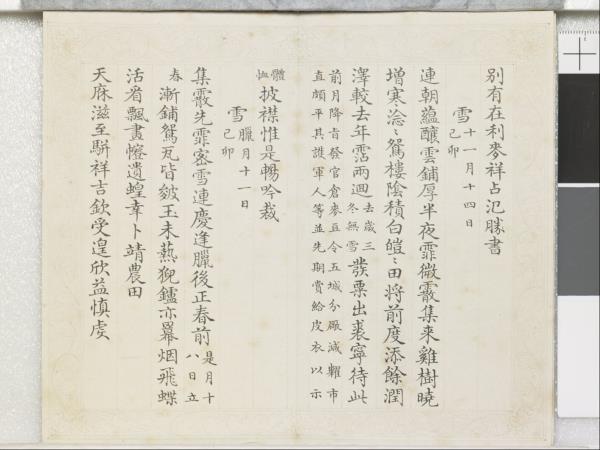 別有在利麥祥占氾勝書
雪 己卯十一月十四日
連朝蘊釀雲鋪厚半夜霏微霰集來雞樹曉
增寒淰淰鴛樓陰積白皚皚田將前度添餘潤
澤較去年霑兩迴 去歲三冬無雪 發粟出裘寧待此
前月降旨發官倉麥豆令五城分廠減糶市
直頗平其護軍人等並先期賞給皮衣以示
體恤 披襟惟是暢吟裁
雪 己卯臘月十一日
集霰先霏密雪連慶逢臘後正春前 是月十八日立
春 漸鋪鴛瓦皆皴玉未爇猊鑪亦羃烟飛蝶
沾看飄畫幰遺蝗幸卜靖農田
天庥滋至駢祥吉欽受遑欣益慎虔